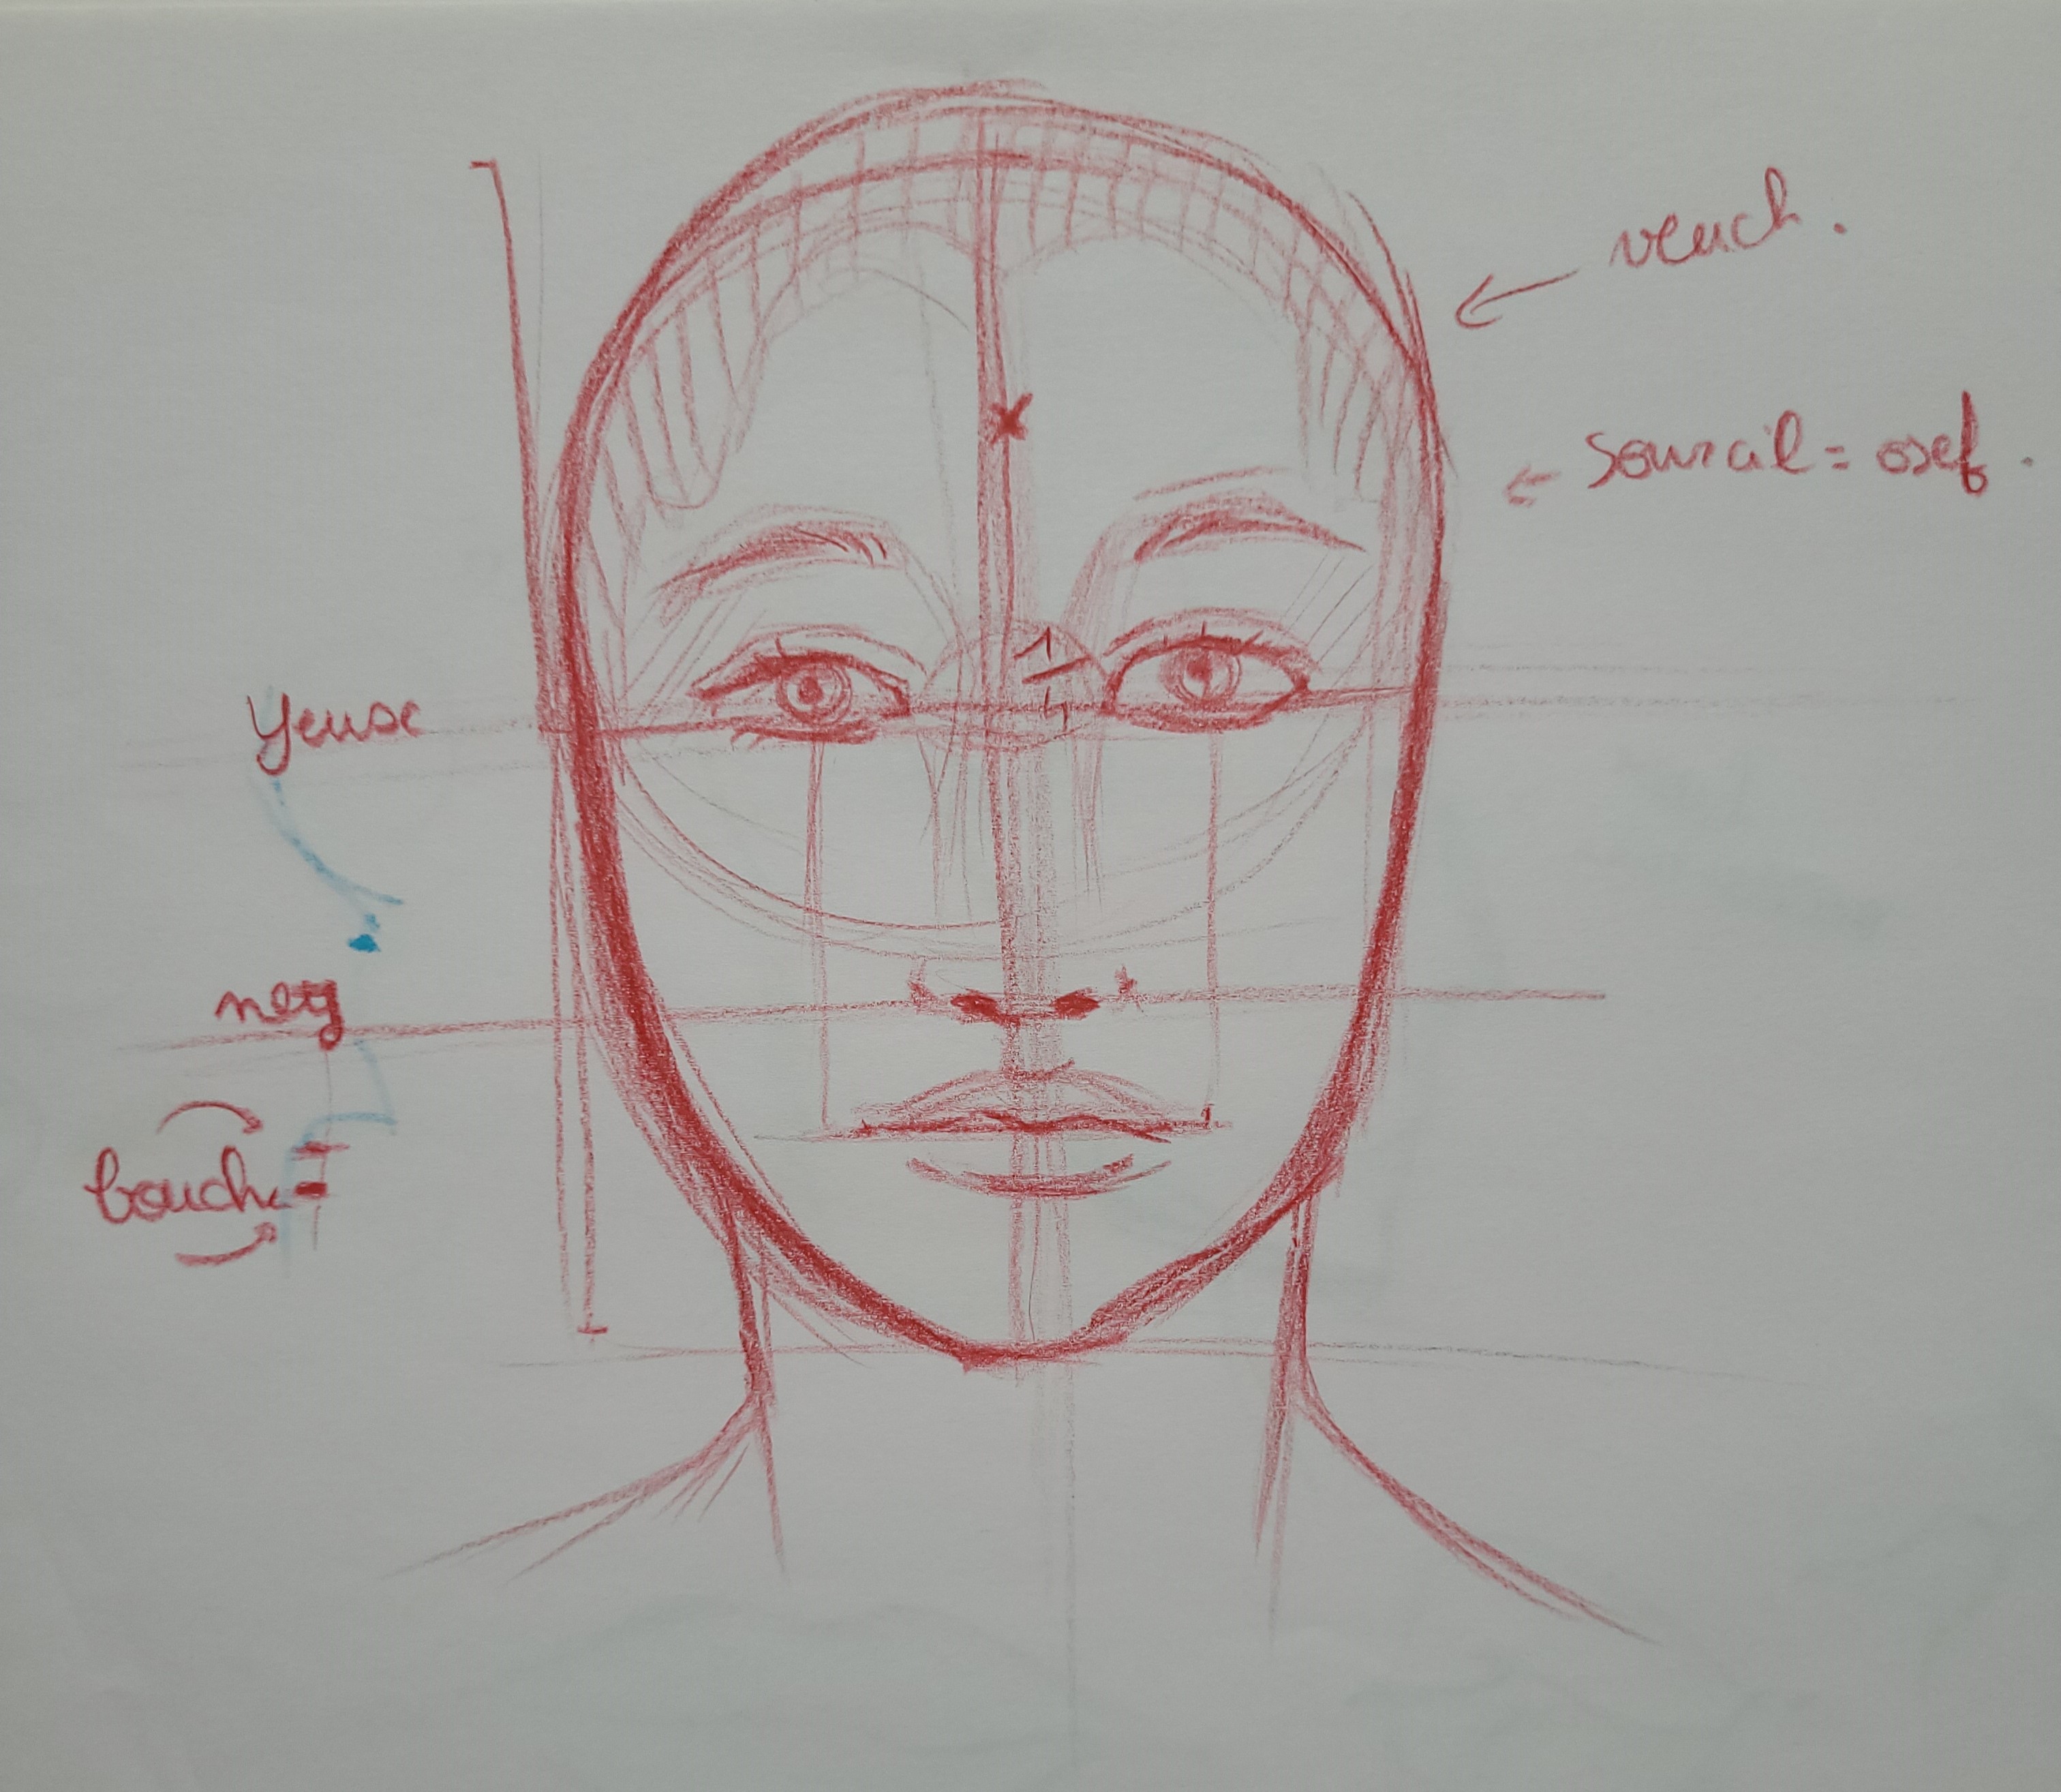 veuch.
Sourcil = osef.
1/4
Yeux
nez
bouche